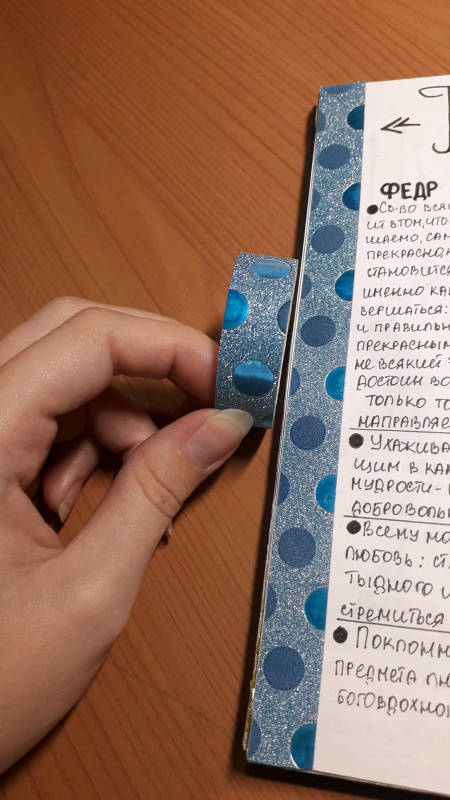 ФЕДР
СВ-ВО ВСЯ
ИТ В ТОМ, ЧТО
ШАЕМО, САМ
ПРЕКРАСНО,
СТАНОВИТСЯ
ИМЕННО КАК
ВЕРШАТЬСЯ:
И ПРАВИЛЬН
ПРЕКРАСНЫМ
НЕ ВСЯКИЙ
ДОСТОИН ВО
ТОЛЬКО ТО
НАПРАВЛЯЕ
УХАЖИВА
ЩИМ В КАК
МУДРОСТИ-
ДОБРОВОЛЬ
ВСЕМУ МО
ЛЮБОВЬ: СТ
ТЫДНОГО И
СТРЕМИТЬСЯ
ПОКЛОНН
ПРЕДМЕТА ЛЮ
БОГОВДОХНО